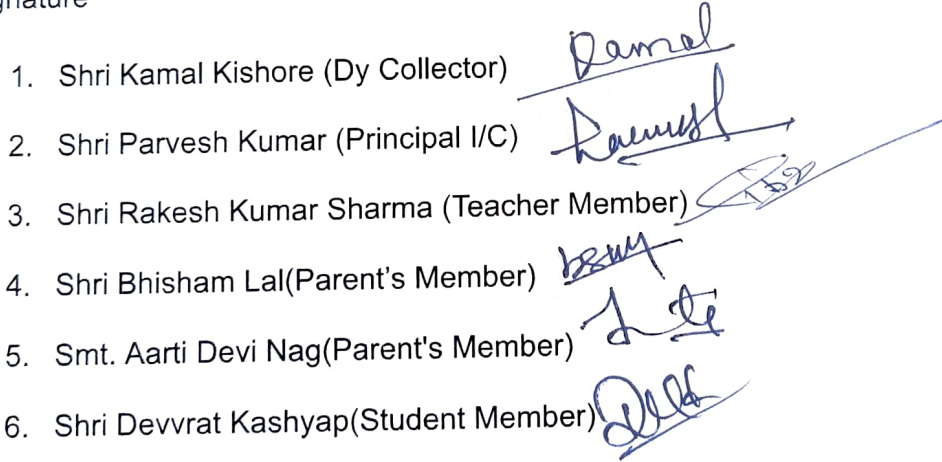 1. Shri Kamal Kishore (Dy Collector)
2. Shri Parvesh Kumar (Principal I/C)
3. Shri Rakesh Kumar Sharma (Teacher Member)
4. Shri Bhisham Lal(Parent's Member)
5. Smt. Aarti Devi Nag(Parent's Member)
6. Shri Devvrat Kashyap(Student Member)